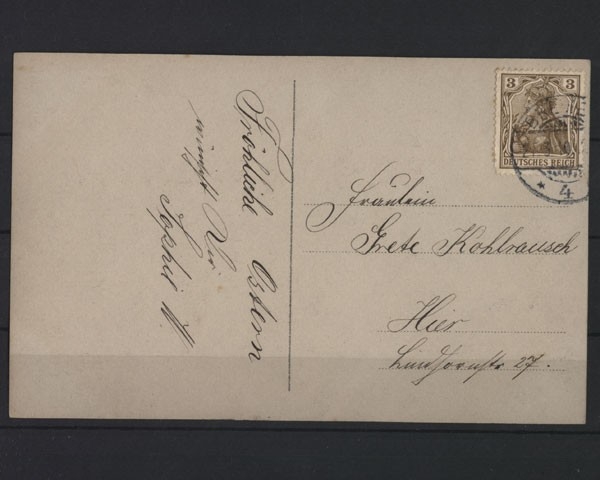 Fröhliche Ostern
wünscht Dir
Sophie W.
3 3
DEUTSCHES REICH
* 4
Fräulein
Grete Kohlrausch
Hier
27.